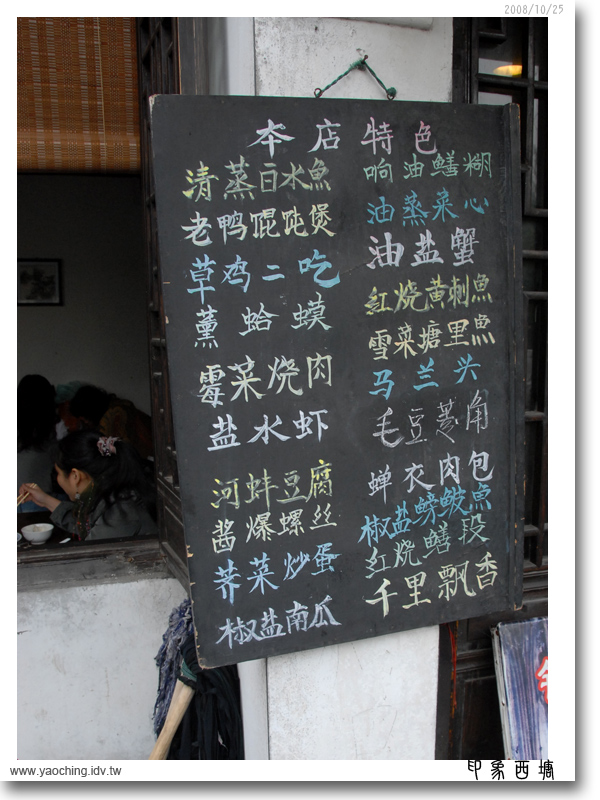 2008/10/25
本店特色
清蒸白水魚
老鸭馄饨煲
草鸡二吃
薰蛤蟆
霉菜烧肉
盐水虾
河蚌豆腐
酱爆螺丝
荠菜炒蛋
椒盐南瓜
响油鳝糊
油蒸菜心
油盐蟹
红烧黄刺魚
雪菜塘里魚
马兰头
毛豆菱角
蝉衣肉包
椒盐鳑鲏魚
红烧鳝段
千里飘香
www.yaoching.idv.tw
印象西塘